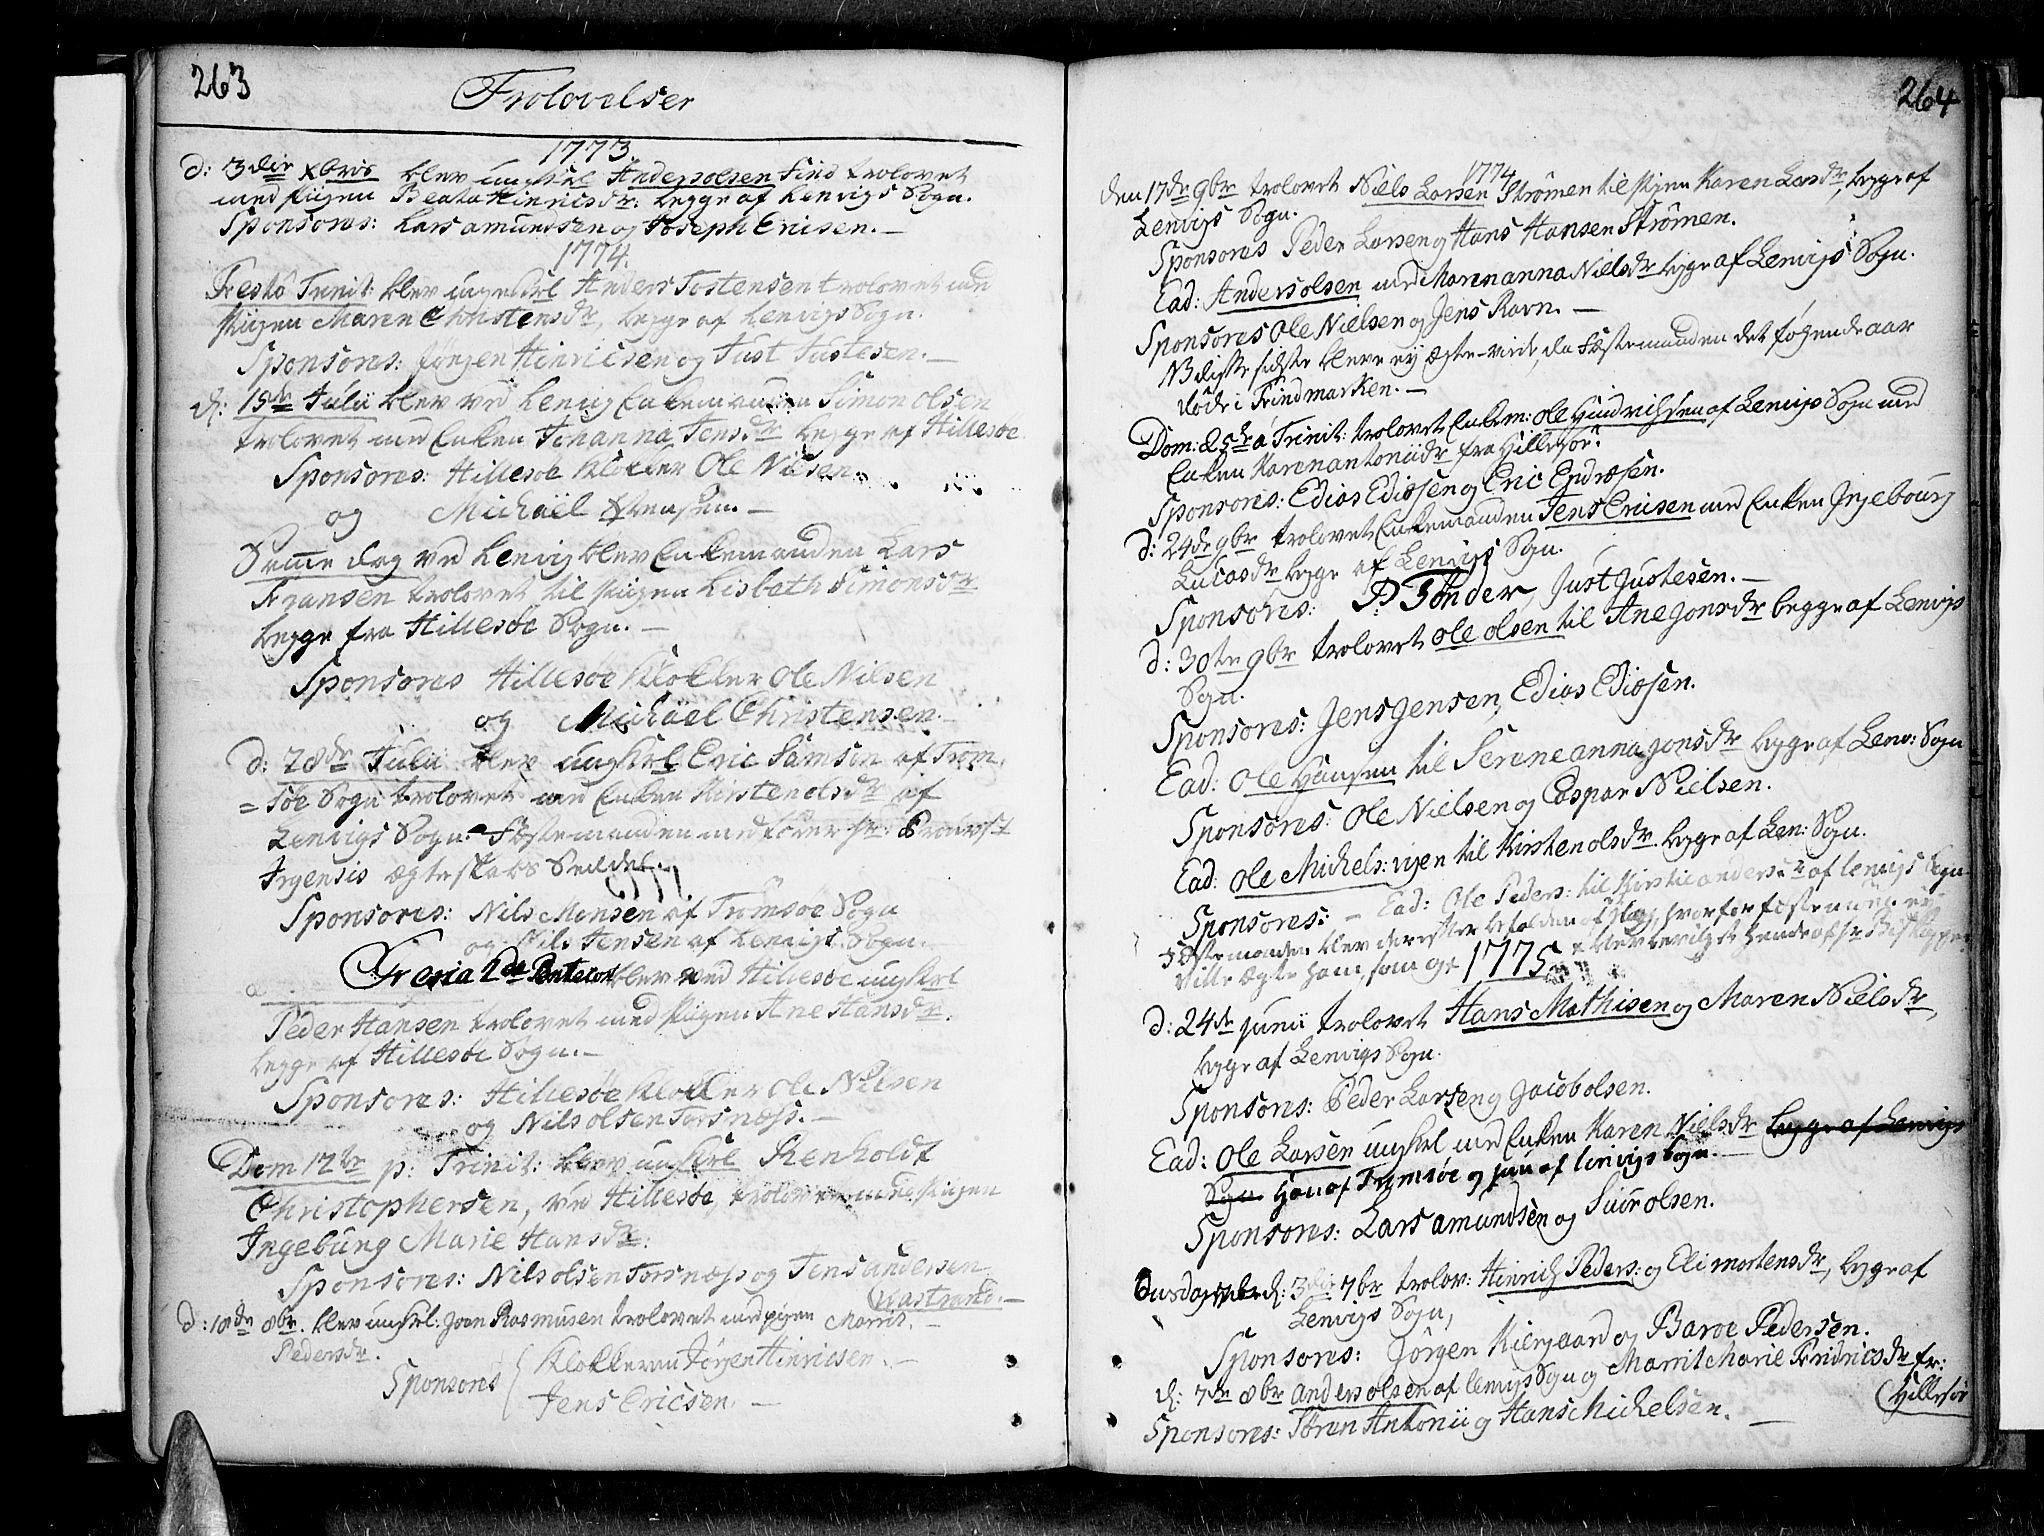 263
Trolovelser
1773.
d: 3die xbris blev ungkrl Anders olsen Find trolovet
med pigen Beata Hinricsdr: begge af Lenvigs Sogn.
Sponsores: Lars amundsen og Joseph Ericsen. —
1774.
Festô Trinit: blev ungekrl Anders Tostensen trolovet med
pigen Maren Christensdr, begge af Lenvigs Sogn.
Sponsores: Jørgen Hinricsen og Just Justesen. —
d: 15de Julii blev ved Lenvig Enkemanden Simon olsen
trolovet med Enken Johanna Jensdr begge af Hillesøe
Sponsores: Hillesøe Klokker Ole Nilsen
og Michaël Xstensen. —
Samme dag ved Lenvig blev Enkemanden Lars
Fransen trolovet til pigen Lisbeth Simonsdr
begge fra Hillesøe Sogn. —
Sponsores Hillesøe Klokker Ole Nilsen
og Michael Christensen.
d: 28de Julii blev ungkrl Eric Samson af Trom,
= søe Sogn trolovet med Enken Kirsten olsdr af
Lenvigs Sogn. Fæstemanden medfører hr: Prowst
Irgensis ægteskabs Seddel.
Sponsores: Nils Monsen af Tromsøe Sogn
og Nils Jensen af Lenvigs Sogn.
Feria 2da Pentecost blev ved Hillesøe ungkrl
Peder Hansen trolovet med pigen Ane Hansdr.
begge af Hillesøe Sogn. —
Sponsores: Hillesøe Klokker Ole Nilsen
og Nils olsen Torsnæss. —
Dom 12te p: Trinit: blev ungkrl Renholdt
Christophersen, ved Hillesøe, trolovet med pigen
Ingebùrg Marie Hansdr:
Sponsores: Nils olsen Torsnæss og Jens andersen
Kastrand. —
d: 18de 8br. blev ungkrl: Joen Rasmusen trolovet med pigen Marrit
Pedersdr.
Sponsores Klokkeren Jørgen Hinricsen. —
Jens Ericsen. —
264
1774
den 17de 9br trolovet Niels Larsen Strømen til pigen Karen Larsdr, begge af
Lenvigs Sogn.
Sponsores Peder Larsen og Hans Hansen Strømen.
Ead: Anders olsen med Maren anna Nielsdr begge af Lenvigs Sogn.
Sponsores Ole Nielsen og Jens Ravn. —
NB disse sidste bleve ej ægte-viede, da Fæstemanden det følgende aar
døde i Findmarken. —
Dom: 25ta Trinit: trolovet Enkem: Ole Hindrichsen af Lenvigs Sogn med
Enken Karen antoniidr fra Hillesøe.
Sponsores: Edias Ediæsen og Eric Endresen.
d: 24de 9br trolovet Enkemanden Jens Ericsen med Enken Ingebourg
Lucasdr begge af Lenvigs Sogn.
Sponsores: P. Tønder, Just Justesen. —
d: 30te 9br trolovet ole olsen til Ane Jonsdr begge af Lenvigs
Sogn.
Sponsores: Jens Jensen, Edias Ediæsen.
Ead: Ole Hansen til Serene anna Jonsdr begge af Lenv: Sogn
Sponsores: Ole Nielsen og Caspar Nielsen.
Ead: ole Michels: vigen til Kirsten olsdr. begge af Len: Sogn.
Sponsores: — Ead: Ole Peders: til Kirstie andersdr af Lenvigs Sogn
Fæstemanden blev derefter befalden af Slag, hvorfor fæstemøen ej
ville ægte ham, som og blev bevilget hende af hr Biskoppen
1775
d: 24de junii trolovet Hans Mathisen og Maren Nielsdr,
begge af Lenvigs Sogn.
Sponsores: Peder Larsen og Jacob olsen.
Ead: Ole Larsen ungkrl med Enken Karen Nielsdr begge af Lenvigs
Sogn Han af Tromsøe og hun af Lenvigs Sogn.
Sponsores: Lars amundsen og Siur olsen.
d: 3die 7br trolov: Hinrich Peders: og Eli mortensdr, begge af
Lenvigs Sogn,
Sponsores: Jörgen Kiergaard og Baroe Pedersen.
d: 7de 8br anders olsen af Lenvigs Sogn og Marrit Marie Fridricsdr fr:
Hillesøe
Sponsores: Sören Antonii og Hans Michelsen. —